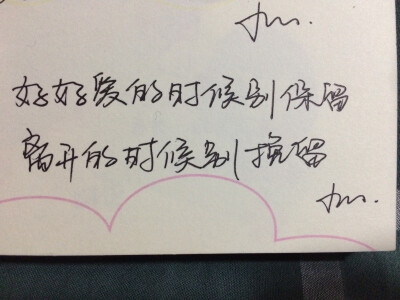 好好爱的时候别保留
离开的时候别挽留